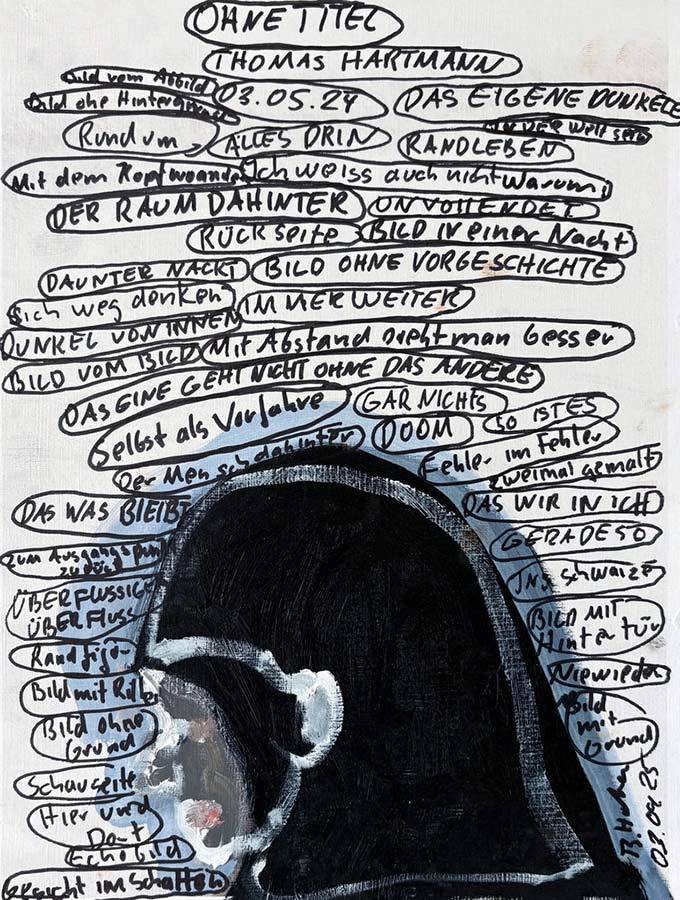 OHNE TITEL
THOMAS HARTMANN
Bild vom Abbild
Bild ohe Hintergrund
03.05.24
DAS EIGENE DUNKELE
Rundum
ALLES DRIN
RANDLEBEN
IN DER WELT sein
Mit dem Kopf woanders
Ich weiss auch nicht warum
DER RAUM DAHINTER
UNVOLLENDET
RÜCKSEITE
BILD IN einer Nacht
DAUNTER NACKT
BILD OHNE VORGESCHICHTE
Sich weg denken
IMMER WEITER
DUNKEL VON INNEN
BILD VOM BILD
Mit Abstand sieht man besser
DAS EINE GEHT NICHT OHNE DAS ANDERE
Selbst als Vorfahre
GAR NICHTS
SO IST ES
DOOM
Der Mensch dahinter
Fehler im Fehler
zweimal gemalt
DAS WAS BLEIBT
DAS WIR IN ICH
GERADE SO
zum Ausgangspunkt
zurück
INS schwarze
ÜBERFLÜSSIGE
ÜBERFLUSS
BILD MIT
Hintertür
Randfigur
Niewieder
Bild mit
Bild ohne
Grund
Bild
mit
Grund
Schauseite
Hier und
Dort
Echobild
Gesicht im Schatten
03.04.25